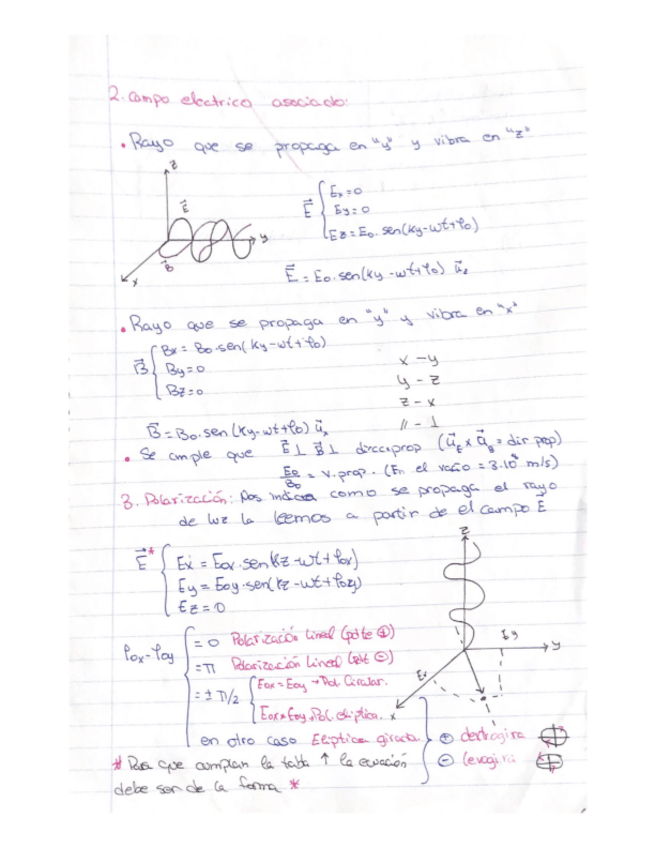 2. Campo electrico asociado:
• Rayo que se propaga en "y" y vibra en "z"
z
E⃗
y
B⃗
x
E⃗ { Ex = 0
Ey = 0
Ez = E0. sen(ky-wt+φ0)
E⃗ = E0. sen(ky-wt+φ0) u⃗z
• Rayo que se propaga en "y" y vibra en "x"
B⃗ { Bx = B0. sen(ky-wt+φ0)
By = 0
Bz = 0
x - y
y - z
z - x
// - ⊥
B⃗ = B0. sen(ky-wt+φ0) u⃗x
• Se cumple que E⃗ ⊥ B⃗ ⊥ direcc prop (u⃗E x u⃗B = dir prop)
E0/B0 = v. prop. (En el vacío = 3.10⁸ m/s)
3. Polarización: Nos indica como se propaga el rayo
de luz la leemos a partir de el campo E⃗
E⃗* { Ex = E0x. sen(kz-wt+φ0x)
Ey = E0y. sen(kz-wt+φ0y)
Ez = 0
z
Ey
y
Ex
x
φ0x-φ0y { = 0 Polarización Lineal (pdte ⊕)
= π Polarización Lineal (pdte ⊖)
= ± π/2 { E0x = E0y → Pol. Circular.
E0x ≠ E0y. Pol. elíptica.
en otro caso Elíptica girada. } ⊕ dextrogira
⊖ levogira
* Para que cumplan la tabla ↑ la ecuación
debe ser de la forma *